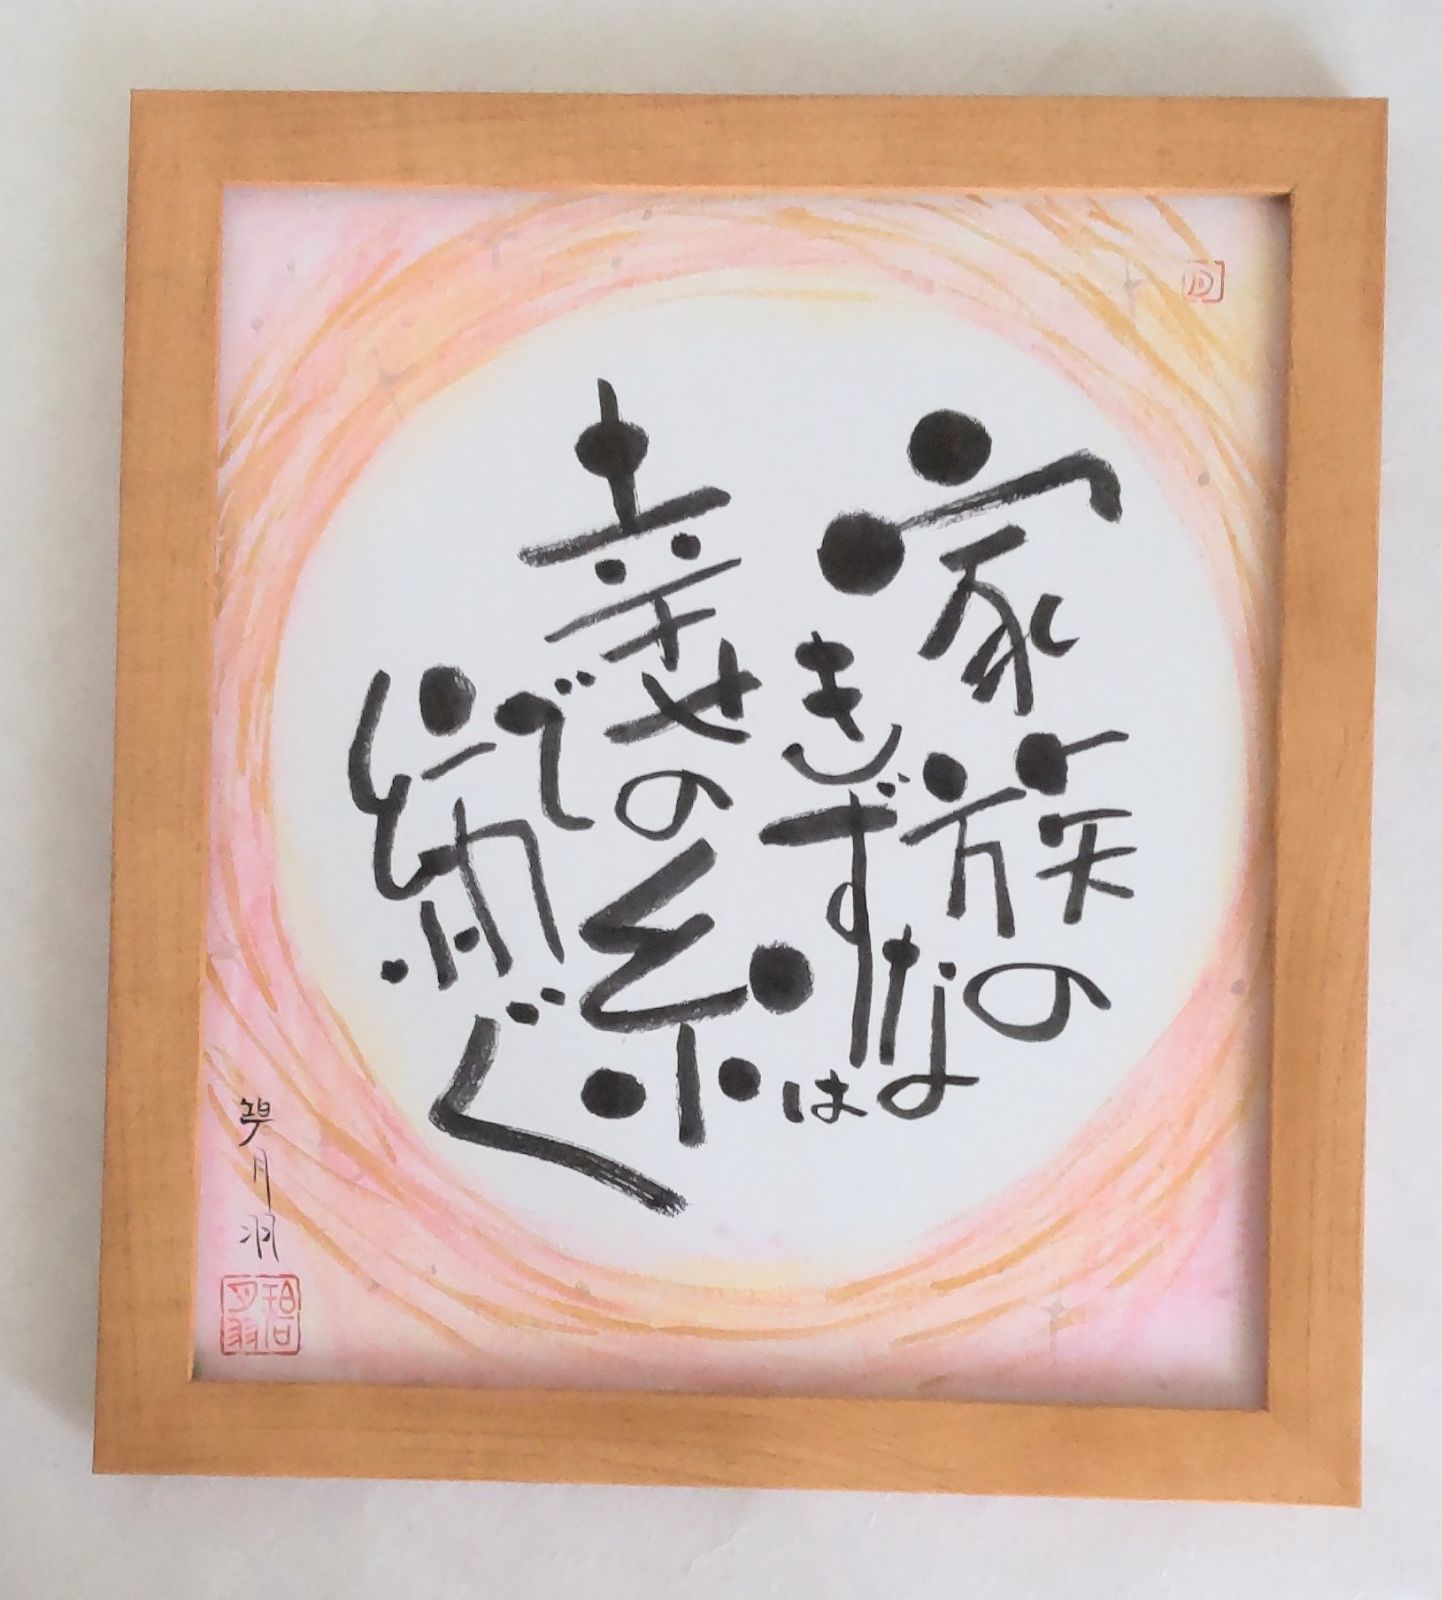 家族の
きずなは
幸せの糸
で紡ぐ
碧月羽
碧月羽